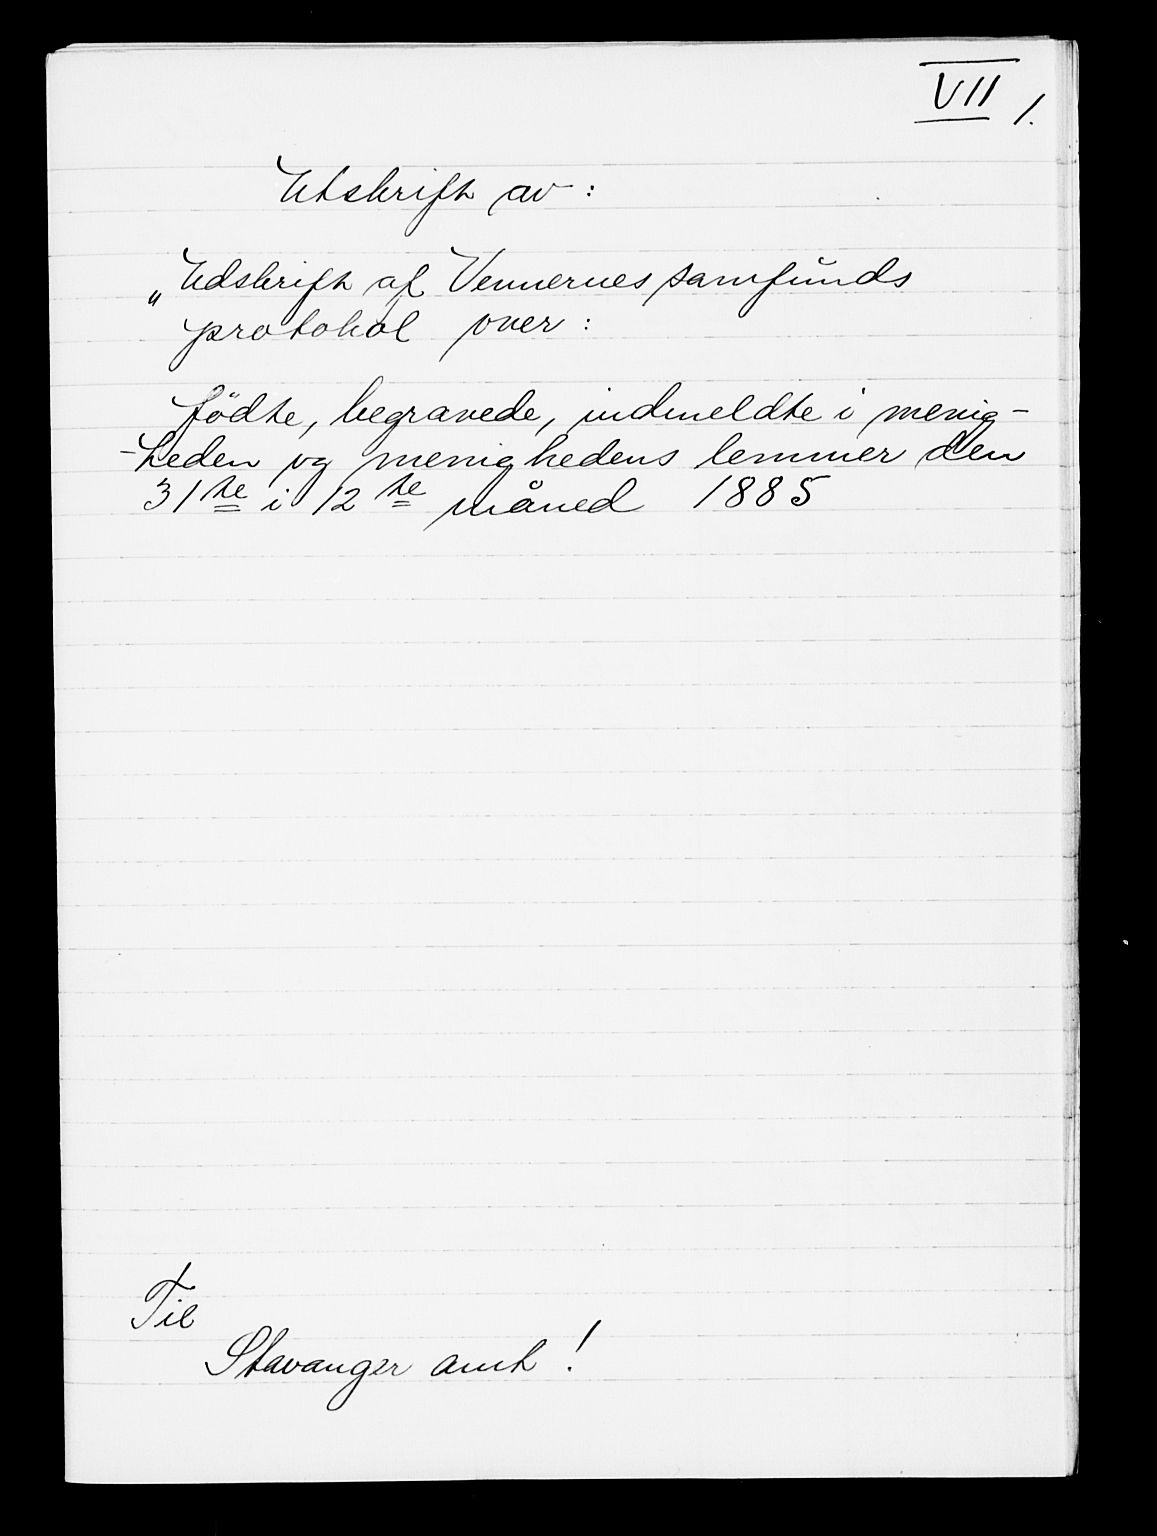 VII 1.
Utskrift av :
„Udskrift af Vennernes samfunds
protokol over :
födte, begravede, indmeldte i menig-
-heden og menighedens lemmer den
31te i 12te måned 1885
Til
Stavanger amt !